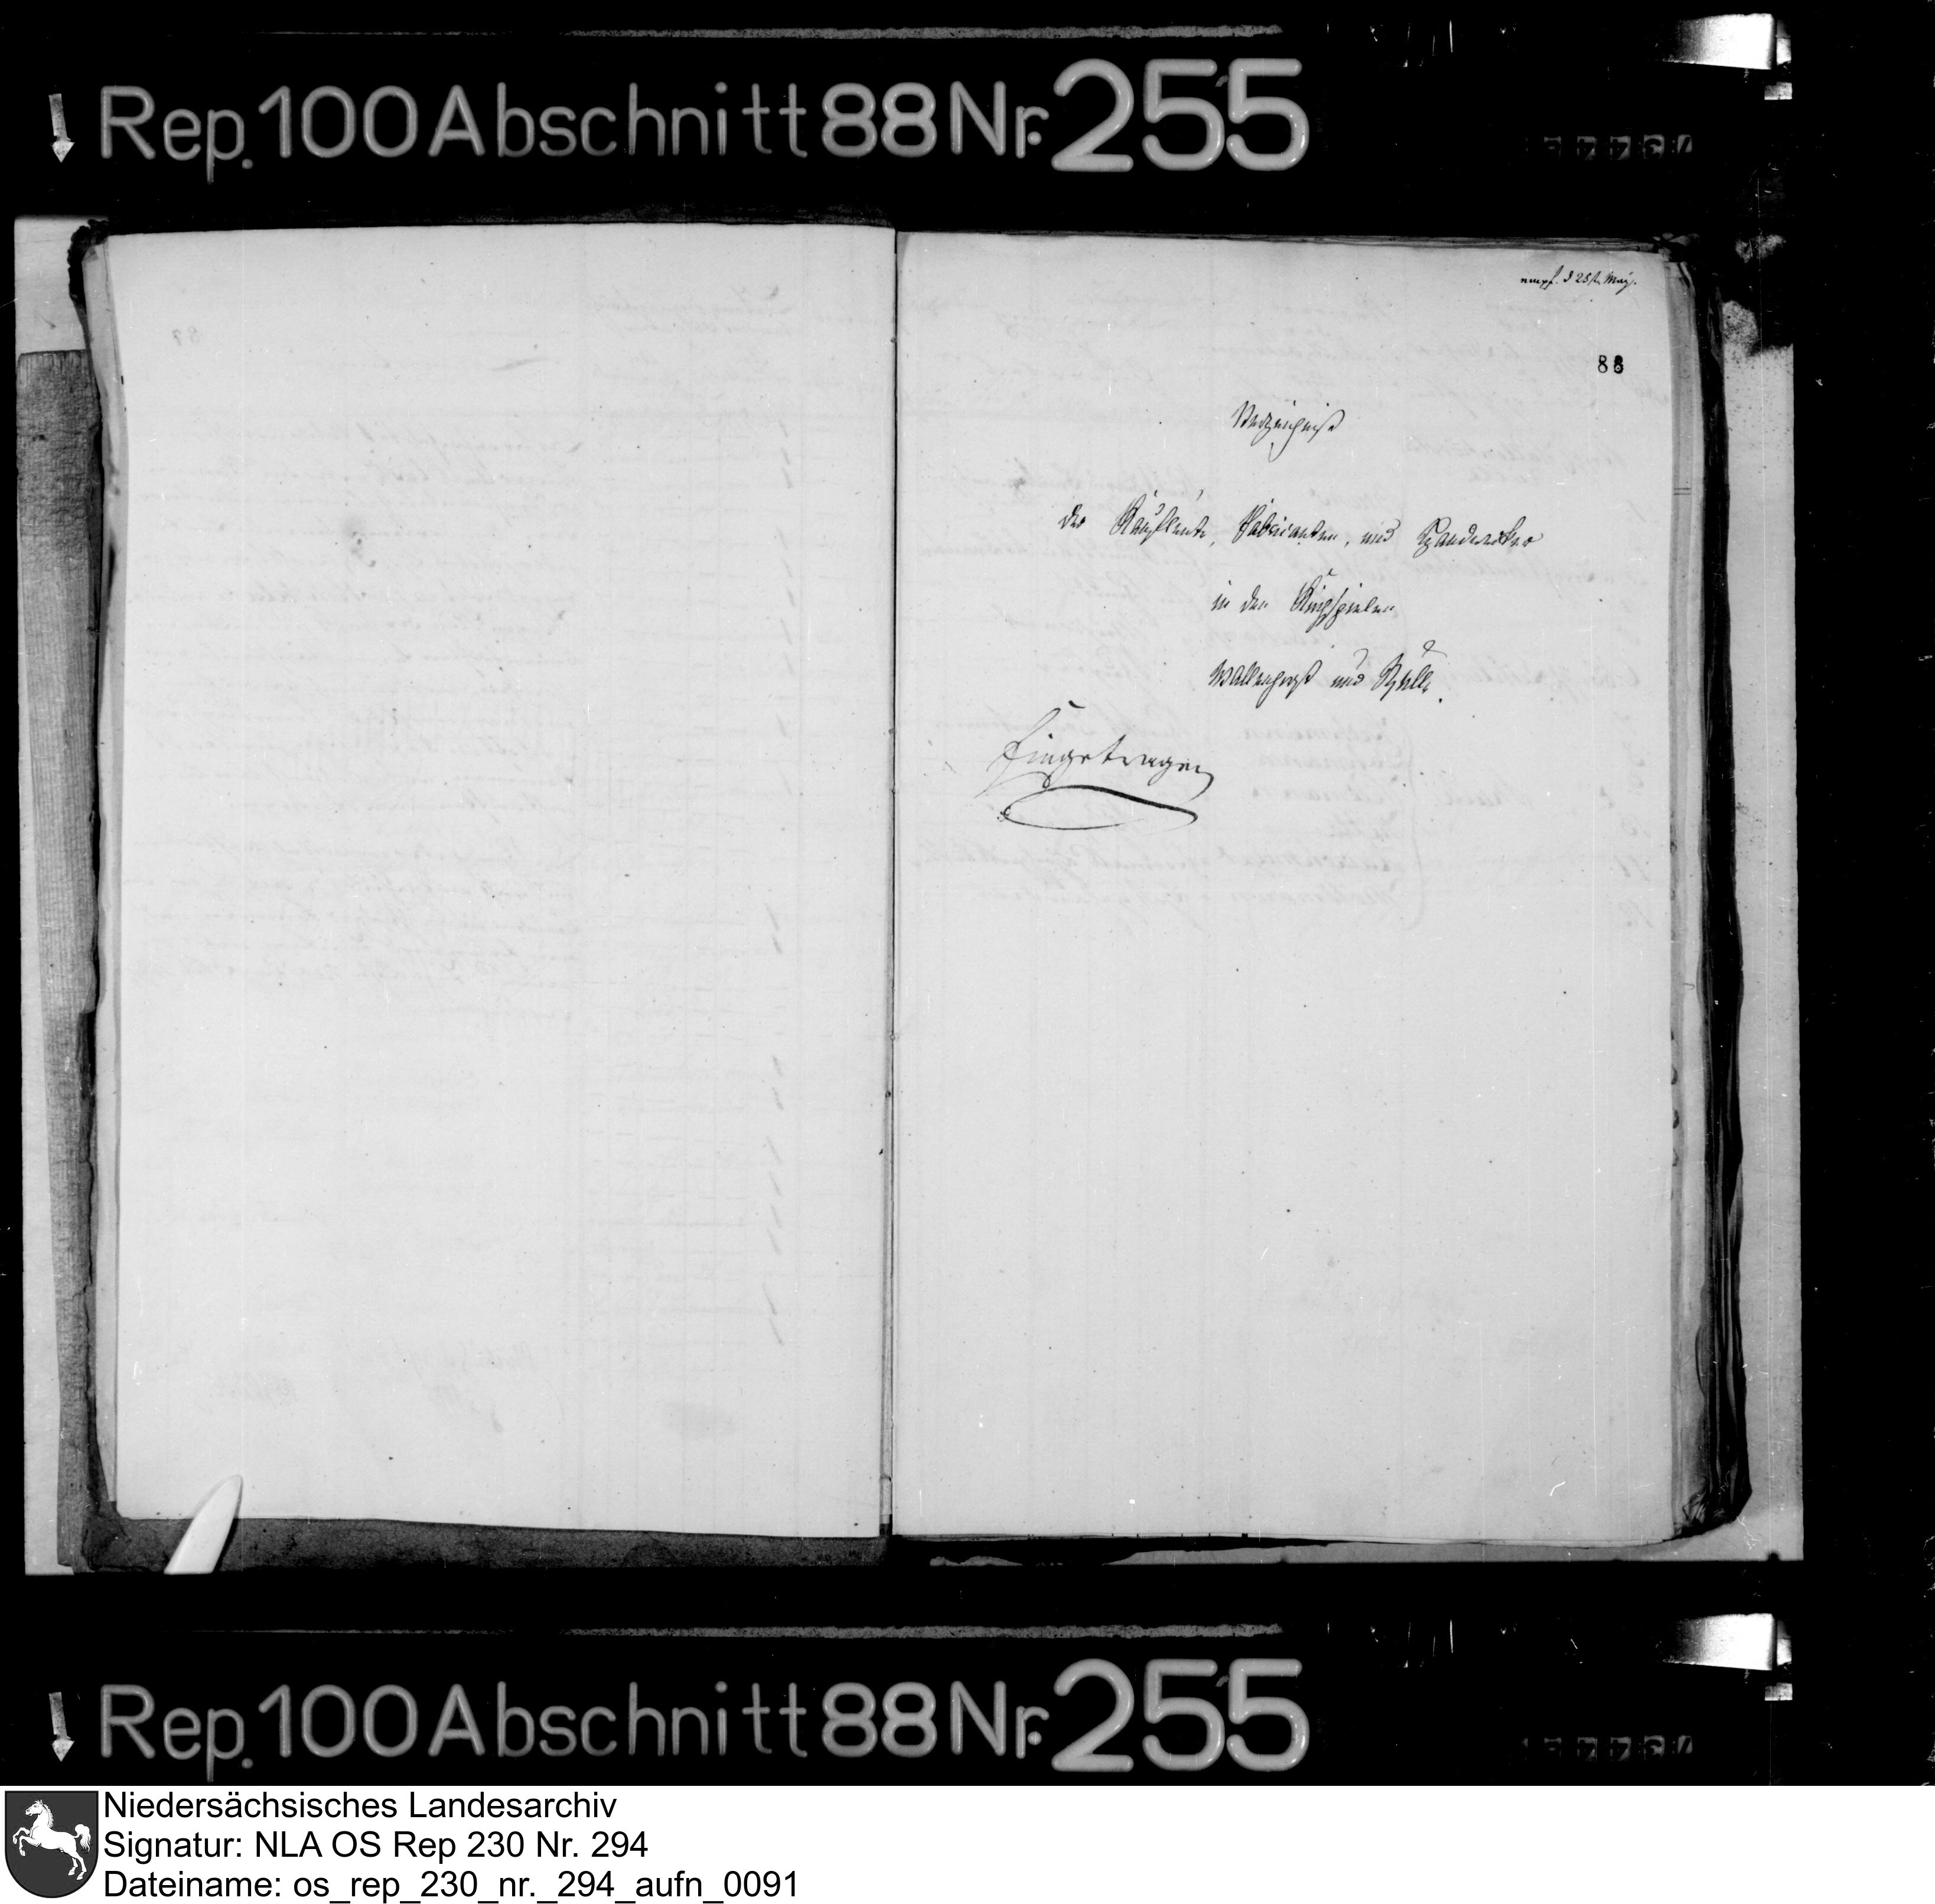 Rep. 100 Abschnitt 88 Nr. 255
empf. d 25t. May.
88
Verzeichniß
der Kaufleute, Fabricanten, und Handwerker
in den Kirchspielen
Wallenhorst und Rulle.
Eingetragen
Rep. 100 Abschnitt 88 Nr. 255
Niedersächsisches Landesarchiv
Signatur: NLA OS Rep 230 Nr. 294
Dateiname: os_rep_230_nr._294_aufn_0091